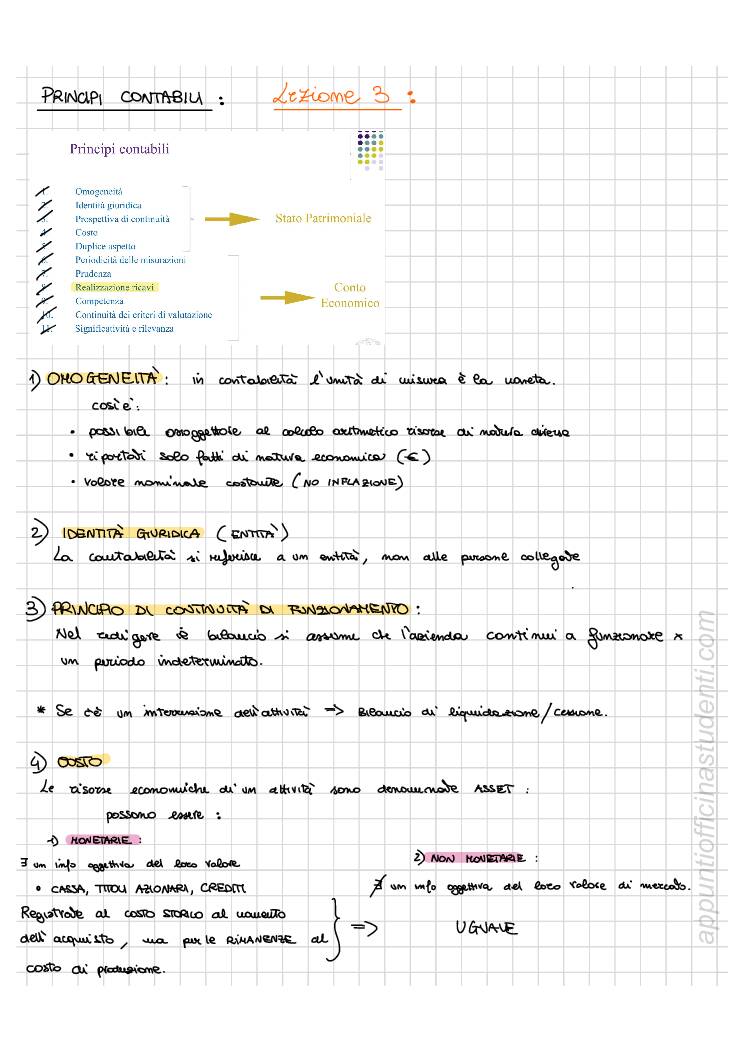 PRINCIPI CONTABILI : Lezione 3 :
Principi contabili
1. Omogeneità
2. Identità giuridica
3. Prospettiva di continuità
4. Costo
5. Duplice aspetto
6. Periodicità delle misurazioni
7. Prudenza
8. Realizzazione ricavi
9. Competenza
10. Continuità dei criteri di valutazione
11. Significatività e rilevanza
Stato Patrimoniale
Conto
Economico
1) OMOGENEITÀ : in contabilità l'unità di misura è la moneta.
così è:
• possibile assoggettare al calcolo aritmetico risorse di natura diversa
• riportati solo fatti di natura economica (€)
• valore nominale costante (NO INFLAZIONE)
2) IDENTITÀ GIURIDICA (ENTITÀ)
La contabilità si riferisce a un entità, non alle persone collegate
3) PRINCIPIO DI CONTINUITÀ DI FUNZIONAMENTO :
Nel redigere il bilancio si assume che l'azienda continui a funzionare x
un periodo indeterminato.
* Se c'è un interruzione dell'attività => Bilancio di liquidazione/cessione.
4) COSTO
Le risorse economiche di un attività sono denominate ASSET :
possono essere :
1) MONETARIE :
∃ un info oggettiva del loro valore
• CASSA, TITOLI AZIONARI, CREDITI
Registrate al costo storico al momento
dell'acquisto, ma per le RIMANENZE al
costo di produzione.
2) NON MONETARIE :
∄ un info oggettiva del loro valore di mercato.
=> UGUALE
appuntiofficinastudenti.com